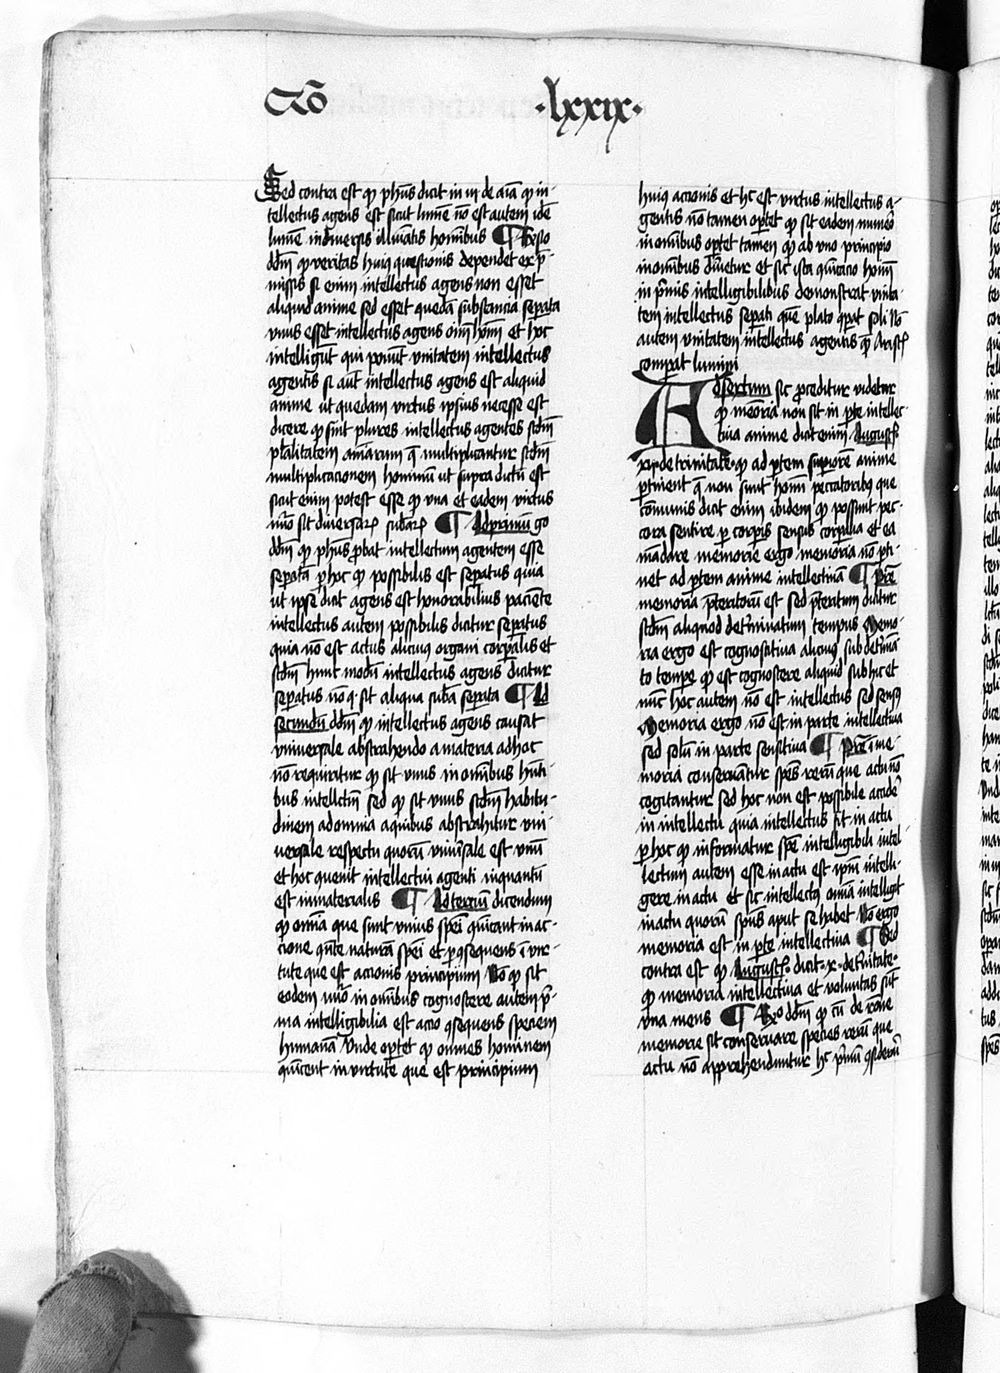 Qō ·lxxix·
Sed contra est qꝫ ph̄us dicit in iii de aīa qꝫ in-
tellectus agens est sicut lumē nō est autem idē
lumē in diuersis illuīatis hominibus ¶ Rn̄sio
dd̄m qꝫ veritas huiꝰ questionis dependet ex p̄-
missis si enim intellectus agens non esset
aliquid anime sed esset quedā substantia sepata
vnus esset intellectus agens oīm hoīm et hoc
intelligūt qui ponūt vnitatem intellectus
agentis si aūt intellectus agens est aliquid
anime ut quedam virtus ipsius necesse est
dicere qꝫ sint plures intellectus agentes scd̄m
pluralitatem aīarum q̄ multiplicantur scd̄m
multiplicationem hominum ut supra dictū est
sicut enim potest esse qꝫ vna et eadem virtus
nūo sit diuersaꝝ subaꝝ ¶ Ad primū go
dd̄m qꝫ ph̄us ꝓbat intellectum agentem esse
sepatū p hoc qꝫ possibilis est sepatus quia
ut ipse dicit agens est honorabilius paciente
intellectus autem possibilis dicitur sepatus
quia nō est actus alicuiꝰ organi corpalis et
scd̄m hunc modū intellectus agens dicitur
sepatus nō q sit aliqua suba sepata ¶ Ad
secundū dd̄m qꝫ intellectus agens causat
vniuersale abstrahendo a materia ad hoc
nō requiritur qꝫ sit vnus in omnibus hn̄ti-
bus intellectū sed qꝫ sit vnus scd̄m habitu-
dinem ad omnia a quibus abstrahitur vni-
uersale respectu quorū vniūsale est vnū
et hoc quenit intellectui agenti inquantū
est inmaterialis ¶ Ad tercium dicendum
qꝫ omīa que sunt vnius spēi quīcant in ac-
cione qn̄te naturā spēi et p ꝯsequens ī vir-
tute que est accionis principium Nō qꝫ sit
eodem nūo in omnibus cognoscere autem p̄-
ma intelligibilia est accio ꝯsequens speciem
humanā Vnde optet qꝫ omnes hominem
quīcent in virtute que est principium
huiꝰ accionis et hec est virtus intellectus a-
gentis nō tamen optet qꝫ sit eadem numeō
in omnibus optet tamen qꝫ ab vno principio
in omnibus diriuetur et sic ista quīcacio hoīm
in p̄mis intelligibilibus demonstrat vnita-
tem intellectus sepati quē plato ꝯpat soli nō
autem vnitatem intellectus agentis quē Aristꝭ
compat lumini
Ad sextum sic proceditur videtur
qꝫ memoria non sit in pte intellec-
tiua anime dicit enim Augustꝭ
xii de trinitate qꝫ ad ptem supiorē anime
ptinent q̄ non sunt hoīm peccatoribꝫ que
comunis dicit enim ibidem qꝫ possunt pec-
cora sentire p corpis sensus corpalia et ea
mādare memorie ergo memoria nō pti-
net ad ptem anime intellectiuā ¶ Pret̄
memoria p̄teritorū est sed p̄teritum dicitur
scd̄m aliquod det̄minatum tempus Memo-
ria ergo est cognoscitiua alicuiꝰ sub det̄mina-
to tempe qꝫ est cognoscere aliquid sub hic et
nūc hoc autem nō est intellectus sed sensꝰ
Memoria ergo nō est in parte intellectiua
sed solū in parte sensitiua ¶ Pret̄ ī me-
moria conseruātur spēs rerū que actu nō
cogitantur sed hoc non est possibile accidē
in intellectu quia intellectus fit in actu
p hoc qꝫ informatur spē intelligibili intel-
lectum autem esse in actu est ipm̄ intelli-
gere in actu et sic intellectꝰ omīa intelligit
in actu quorū spēs aput se habet Nō ergo
memoria est in pte intellectiua ¶ Sed
contra est qꝫ Augustꝭ dicit ·x· de t̄nitate·
qꝫ memoria intellectiua et voluntas sūt
vna mens ¶ Rn̄o dd̄m qꝫ cū de rōne
memorie sit conseruare species rerū que
actu nō apprehenduntur hc p̄mū ꝯsiderari